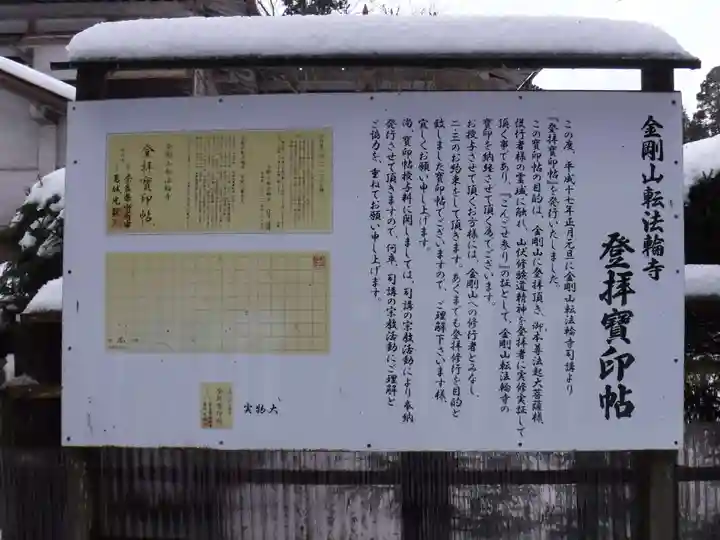 金剛山転法輪寺
登拝寳印帖
この度、平成十七年正月元旦に金剛山転法輪寺司講より
『登拝寳印帖』を発行いたしました。
この寳印帖の目的は、金剛山に登拝頂き、御本尊法起大菩薩様、
役行者様の霊域に触れ、山伏修験道精神を登拝者に実修実証して
頂く事であり、『こんごせ参り』の証として、金剛山転法輪寺の
寳印を納経させて頂く為でございます。
お授与させて頂くお方様には、金剛山への修行者とみなし、
二・三のお約束をして頂きます。あくまでも登拝修行を目的と
致しました寳印帖でございますので、ご理解下さいます様、
宜しくお願い申し上げます。
尚、寳印帖授与料に関しましては、司講の宗教活動により奉納
発行させて頂きますので、何卒、司講の宗教活動にご理解と
ご協力を、重ねてお願い申し上げます。
金剛山転法輪寺
登拝寳印帖
実物大